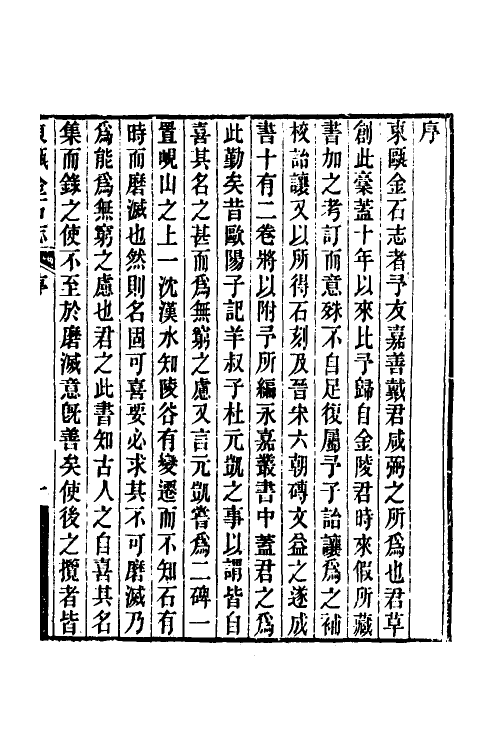 序
東甌金石志者予友嘉善戴君咸弼之所爲也君草
創此稾蓋十年以來比予歸自金陵君時來假所藏
書加之考訂而意𣧑不自足復屬予子詒讓爲之補
校詒讓又以所得石刻及晉宋六朝磚文益之遂成
書十有二卷將以附予所編永嘉叢書中蓋君之爲
此勤矣昔歐陽子記羊叔子杜元凱之事以謂皆自
喜其名之甚而爲無窮之慮又言元凱嘗爲二碑一
置峴山之上一沈漢水知陵谷有變遷而不知石有
時而磨滅也然則名固可喜要必求其不可磨滅乃
爲能爲無窮之慮也君之此書知古人之自喜其名
集而錄之使不至於磨滅意旣善矣使後之攬者皆
東甌金石志
序
一